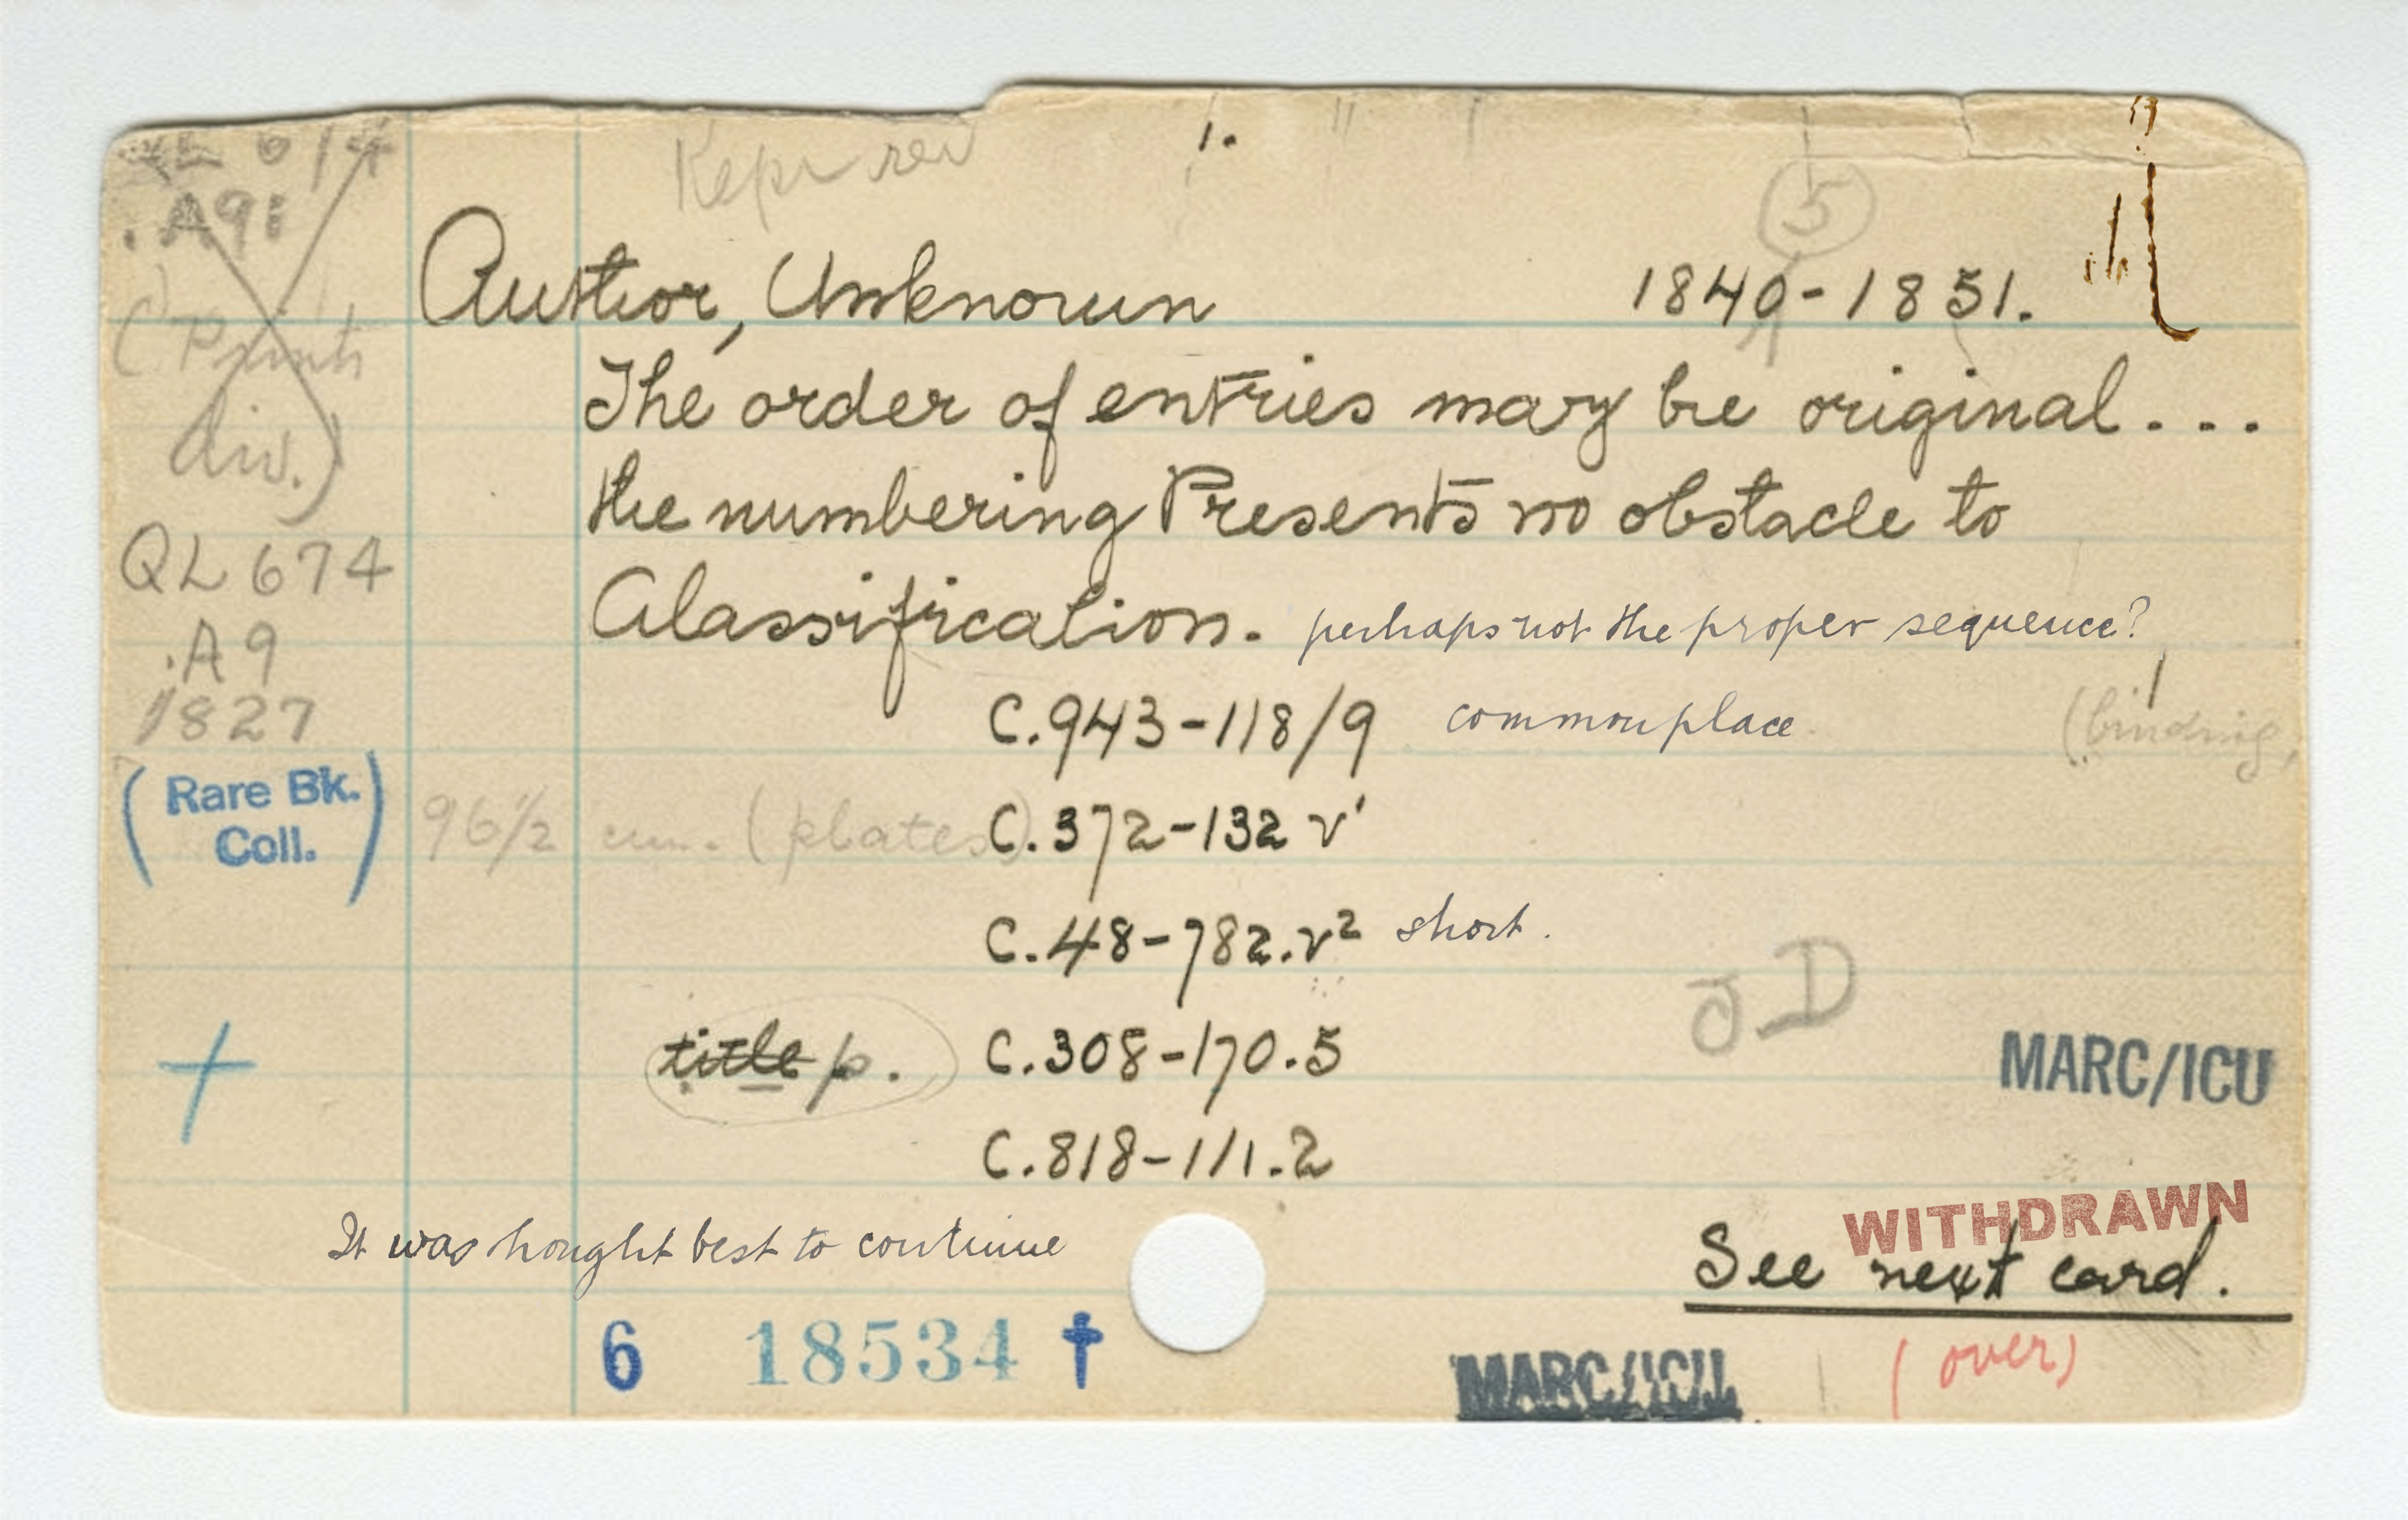 1.
.A9
5
Author, Unknown 1840-1851.
(Prints
div.)
The order of entries may be original...
the numbering Presents no obstacle to
QL674
.A9
1827
Classification. perhaps not the proper sequence?
C.943-118/9 commonplace (binding,
(Rare Bk.
Coll.)
96 1/2 cm. (plates) C.372-132 v'
C.48-782.v² short.
JD
title p. C.308-170.5
MARC/ICU
C.818-111.2
WITHDRAWN
It was hought best to continue
See next card.
6 18534 †
MARC/ICU
(over)